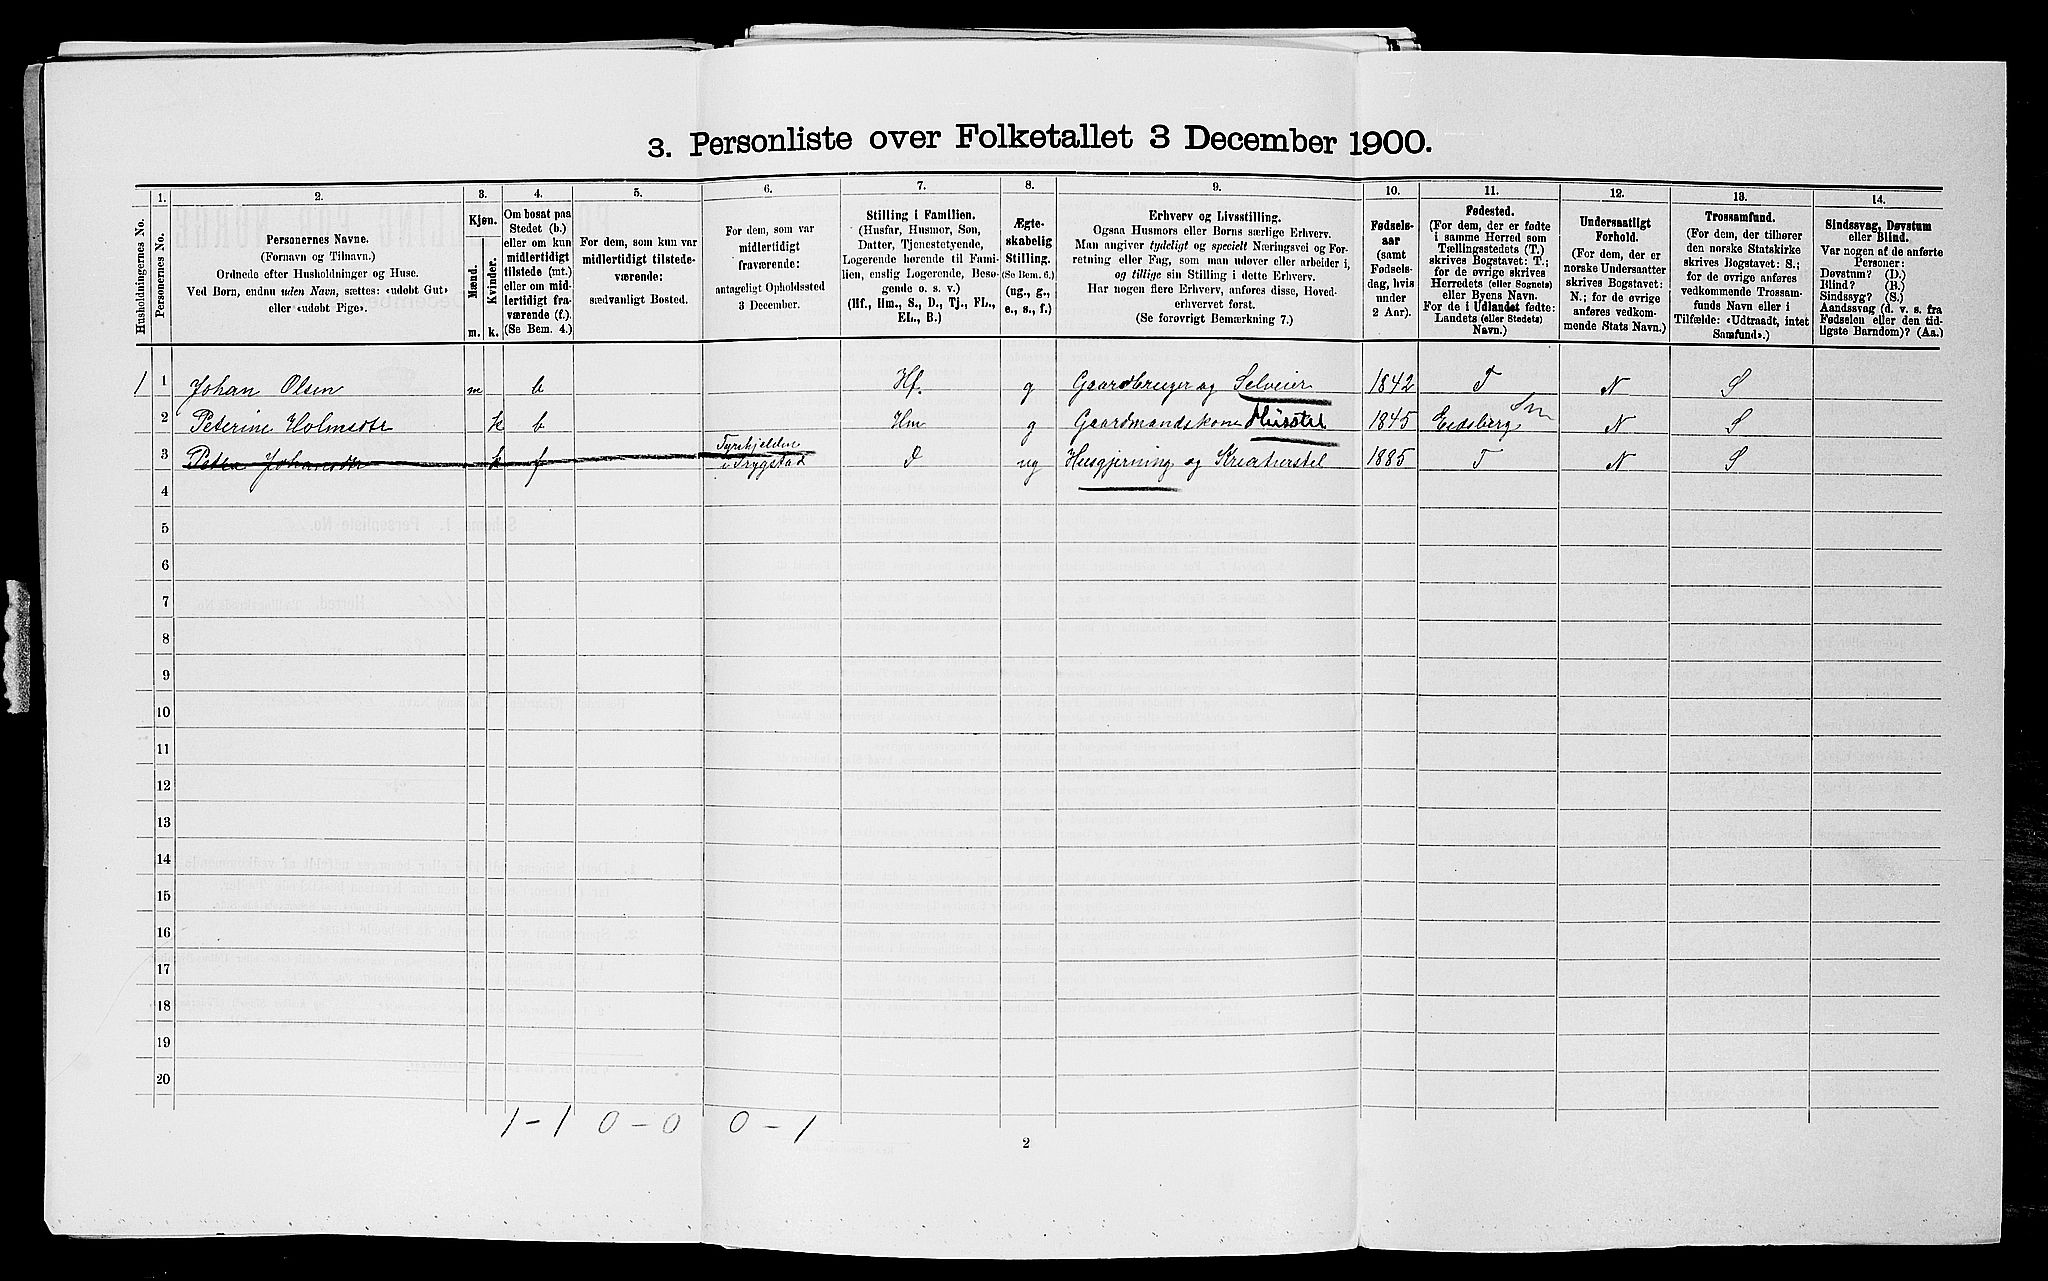 3. Personliste over Folketallet 3 December 1900.
1. 2. 3. 4. 5. 6. 7. 8. 9. 10. 11. 12. 13. 14.
Husholdningernes No.
Personernes No.
Personernes Navne.
(Fornavn og Tilnavn.)
Ordnede efter Husholdninger og Huse.
Ved Børn, endnu uden Navn, sættes: «udøbt Gut»
eller «udøbt Pige».
Kjøn.
Mænd.
Kvinder.
m. k.
Om bosat paa
Stedet (b.)
eller om kun
midlertidigt
tilstede (mt.)
eller om mid-
lertidigt fra-
værende (f.).
(Se Bem. 4.)
For dem, som kun var
midlertidigt tilstede-
værende:
sædvanligt Bosted.
For dem, som var
midlertidigt
fraværende:
antageligt Opholdssted
3 December.
Stilling i Familien.
(Husfar, Husmor, Søn,
Datter, Tjenestetyende,
Logerende hørende til Fami-
lien, enslig Logerende, Besø-
gende o. s. v.)
(Hf., Hm., S., D., Tj., FL.,
EL., B.)
Ægte-
skabelig
Stilling.
(Se Bem. 6.)
(ug., g.,
e., s., f.)
Erhverv og Livsstilling.
Ogsaa Husmors eller Børns særlige Erhverv.
Man angiver tydeligt og specielt Næringsvei og For-
retning eller Fag, som man udøver eller arbeider i,
og tillige sin Stilling i dette Erhverv.
Har nogen flere Erhverv, anføres disse, Hoved-
erhvervet først.
(Se forøvrigt Bemærkning 7.)
Fødsels-
aar
(samt
Fødsels-
dag, hvis
under
2 Aar).
Fødested.
(For dem, der er fødte
i samme Herred som
Tællingsstedets (T.)
skrives Bogstavet: T.;
for de øvrige skrives
Herredets (eller Sognets)
eller Byens Navn.
For de i Udlandet fødte:
Landets (eller Stedets)
Navn.)
Undersaatligt
Forhold.
(For dem, der er
norske Undersaatter
skrives Bogstavet:
N.; for de øvrige
anføres vedkom-
mende Stats Navn.)
Trossamfund.
(For dem, der tilhører
den norske Statskirke
skrives Bogstavet: S.;
for de øvrige anføres
vedkommende Trossam-
funds Navn eller i
Tilfælde: «Udtraadt, intet
Samfund».)
Sindssvag, Døvstum
eller Blind.
Var nogen af de anførte
Personer:
Døvstum? (D.)
Blind? (B.)
Sindssyg? (S.)
Aandssvag (d. v. s. fra
Fødselen eller den tid-
ligste Barndom)? (Aa.)
1 1 Johan Olsen m b Hf. g Gaardbruger og Selveier 1842 T N S
2 Peterine Holmsdtr k b Hm g Gaardmandskone Husstel 1845 Eidsberg Sm N S
3 Petra Johansdtr k f Tyrihjelden i Trygstad d ug Husgjerning og Kreaturstel 1885 T N S
4
5
6
7
8
9
10
11
12
13
14
15
16
17
18
19
20
1-1 0-0 0-1
2